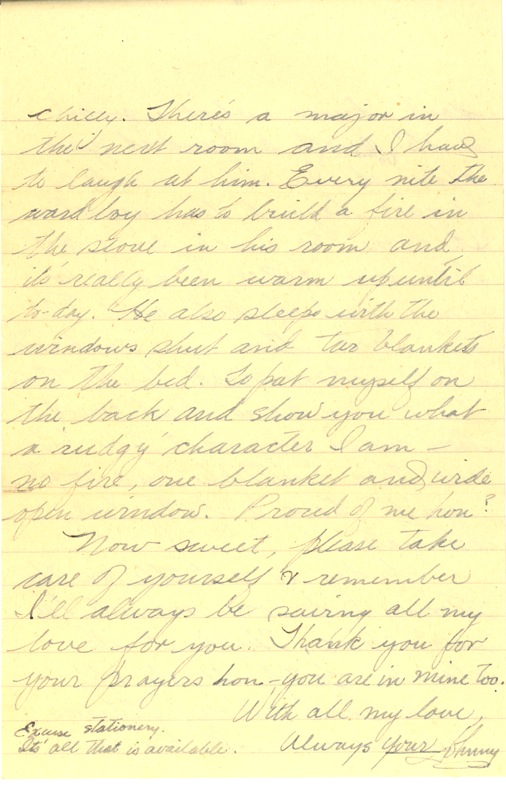 chilly. There's a major in
the next room and I have
to laugh at him. Every nite the
ward boy has to build a fire in
the stove in his room and
its really been warm up until
to-day. He also sleeps with the
windows shut and two blankets
on the bed. To pat myself on
the back and show you what
a rudgy character I am -
no fire, one blanket and wide
open window. Proud of me hon?
Now sweet, please take
care of yourself & remember
I'll always be saving all my
love for you. Thank you for
your prayers hon - you are in mine too.
With all my love,
Always your
Excuse stationery.
Its all that is available.